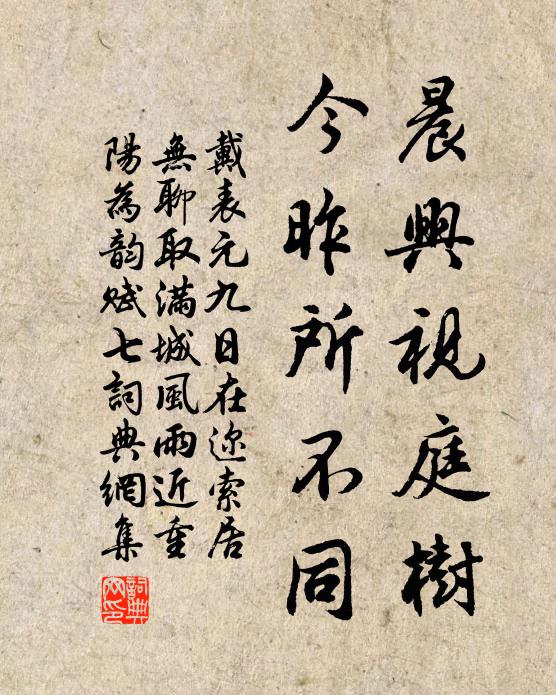 晨興視庭樹
今昨所不同
戴表元九日在迩索居
無聊取滿城風雨近重
陽為韵賦七詞典網集
詞典網印